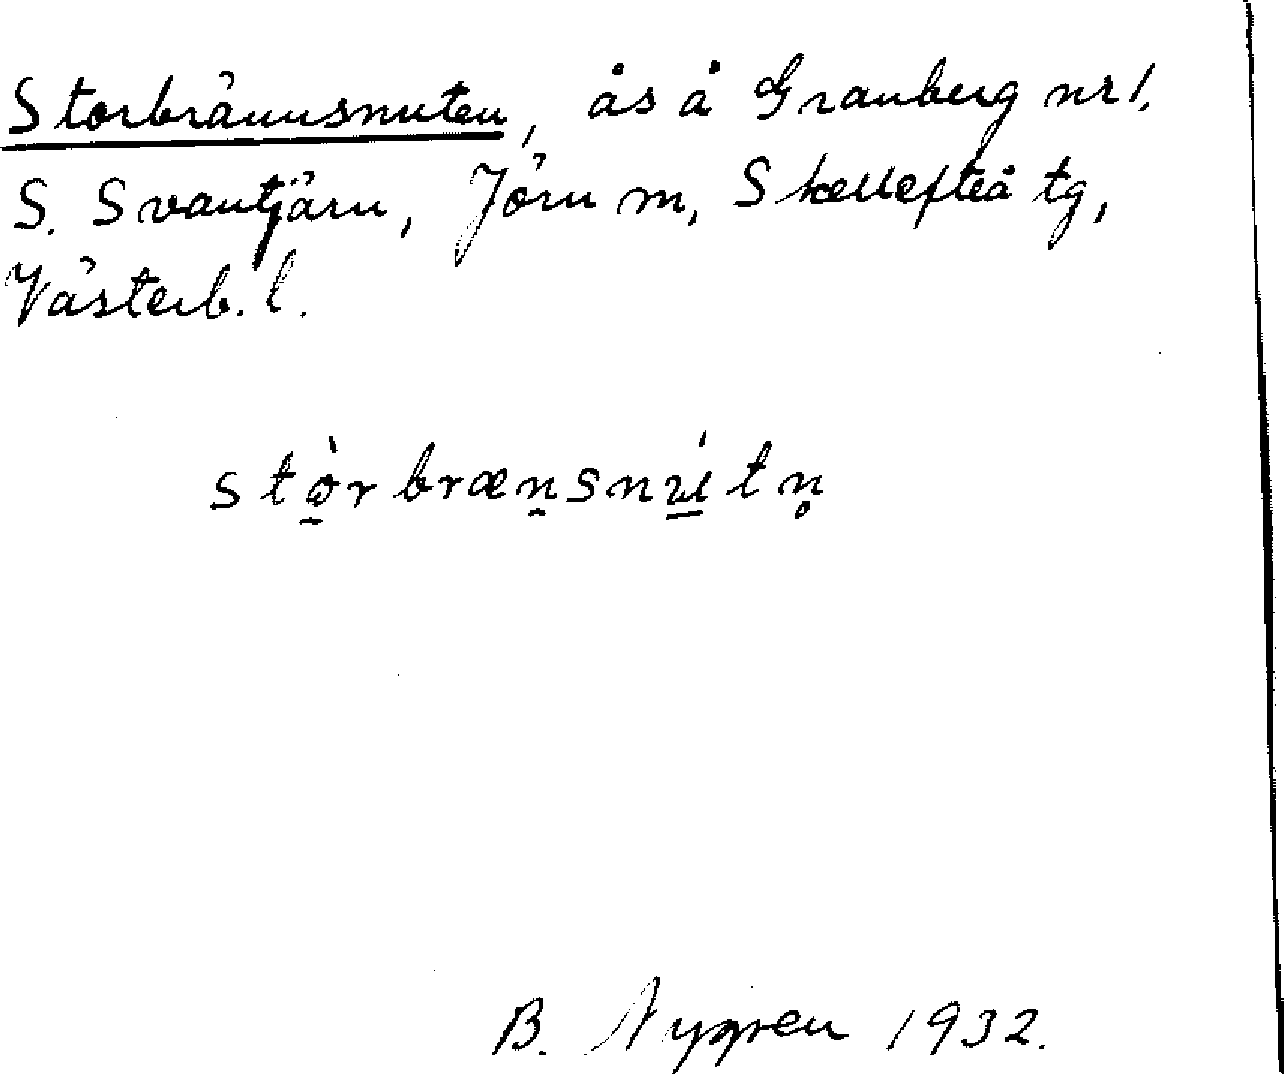 Storbrännsnuten, ås å Granberg nr 1,
S. Svantjärn, Jörn sn, Skellefteå tg,
Västerb. l.
stò̱rbræn̠snú̱tn̥
B. Nygren 1932.